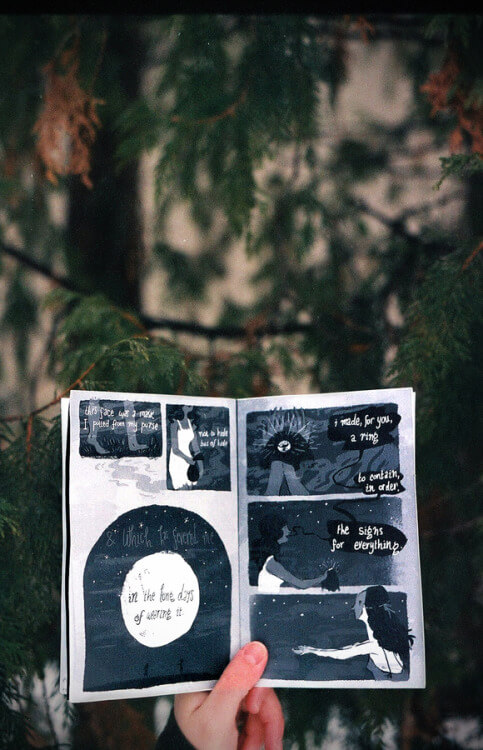 this face was a mask
I pulled from my purse
not to hide
but of hide
& which
in the long days
of wearing it
i made, for you,
a ring
to contain,
in order,
the signs
for everything.